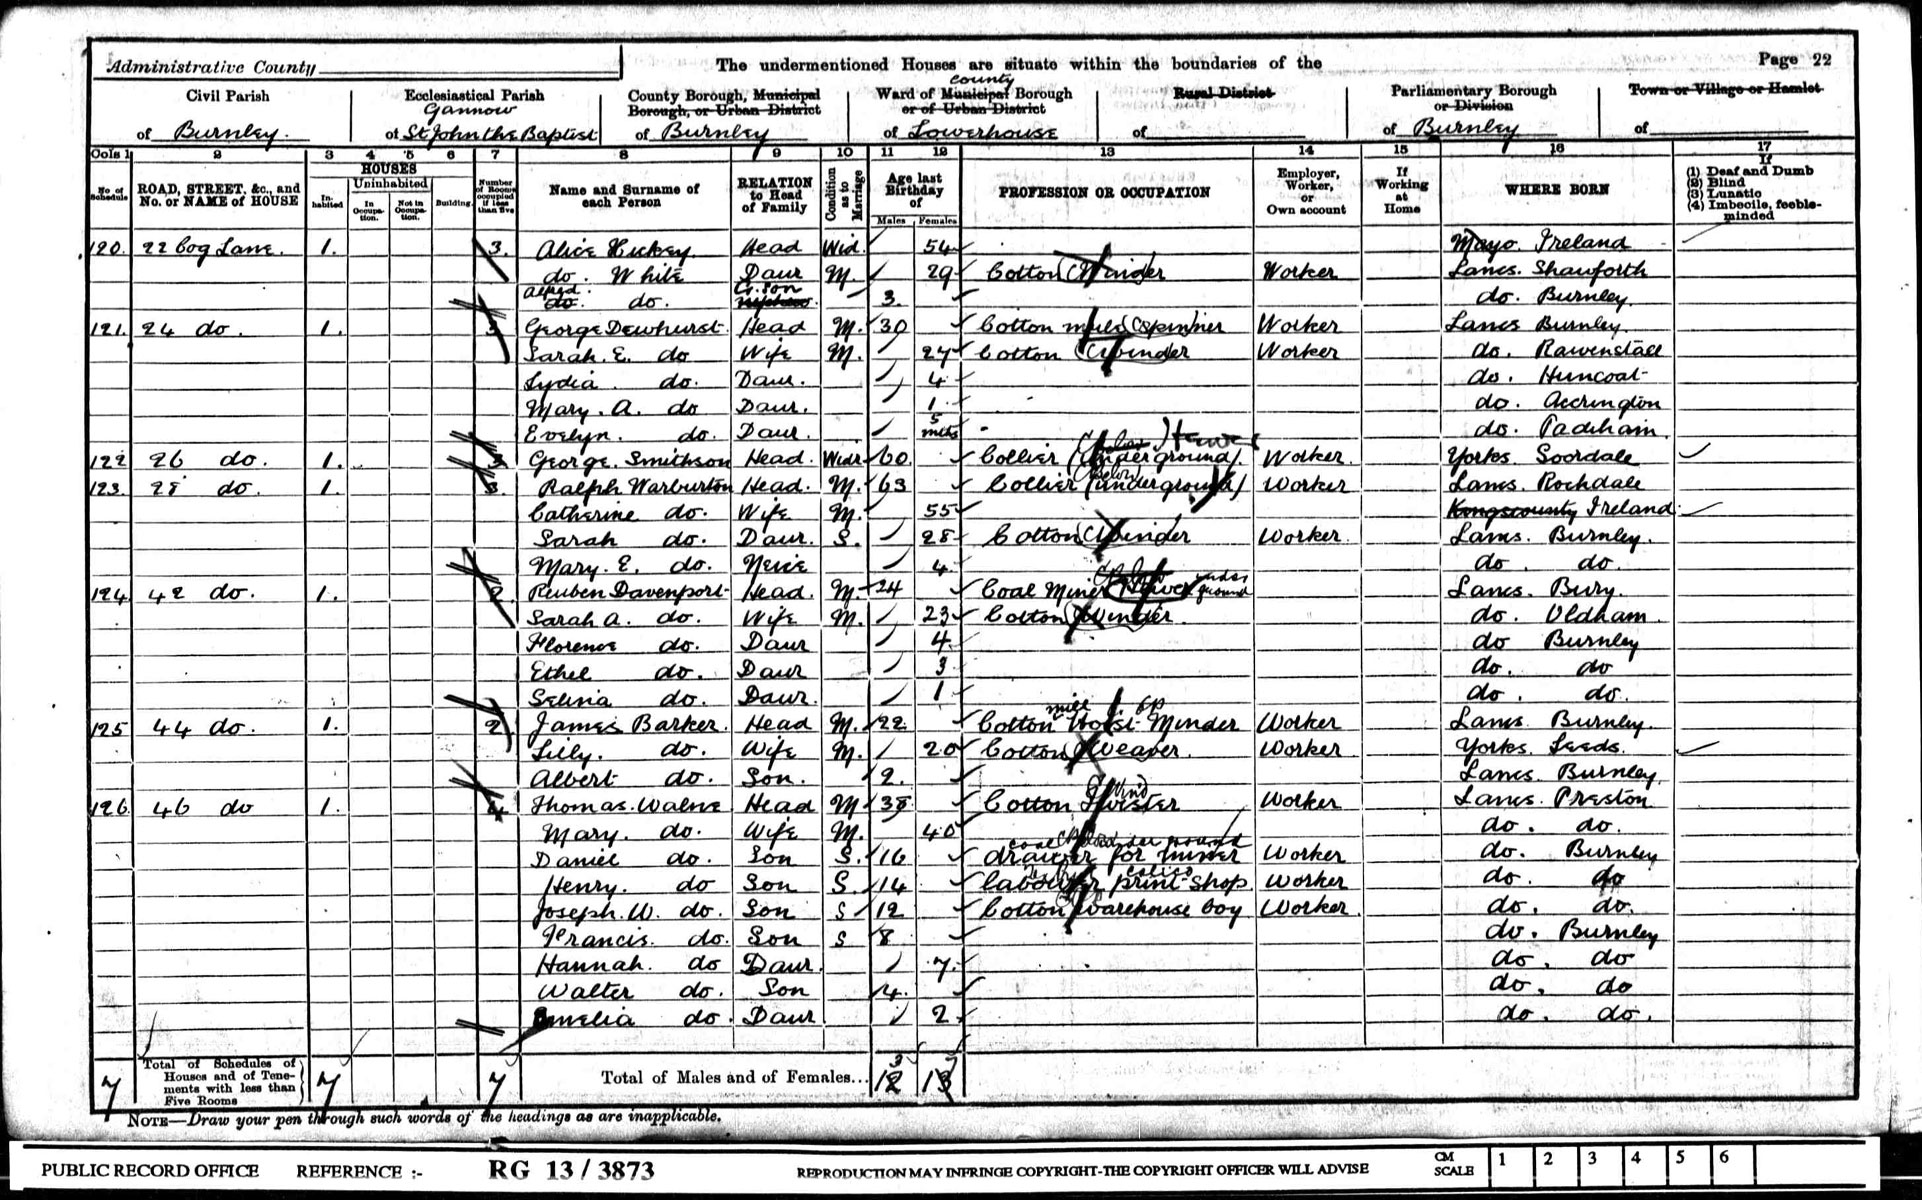 Administrative County
The undermentioned Houses are situate within the boundaries of the
Page 22
Civil Parish of Burnley.
Ecclesiastical Parish Gannow of St John the Baptist
County Borough, Municipal Borough, or Urban District of Burnley
Ward of Municipal county Borough or of Urban District of Lowerhouse
Rural District of
Parliamentary Borough or Division of Burnley
Town or Village or Hamlet of
Cols 1 2 3 4 5 6 7 8 9 10 11 12 13 14 15 16 17
No of Schedule
ROAD, STREET, &c., and No. or NAME of HOUSE
HOUSES
In-habited
Uninhabited
In Occupa-tion.
Not in Occupa-tion.
Building.
Number of Rooms occupied if less than five
Name and Surname of each Person
RELATION to Head of Family
Condition as to Marriage
Age last Birthday of
Males Females
PROFESSION OR OCCUPATION
Employer, Worker, or Own account
If Working at Home
WHERE BORN
If (1) Deaf and Dumb (2) Blind (3) Lunatic (4) Imbecile, feeble-minded
120. 22 Cog Lane. 1. 3. Alice Hickey Head Wid. 54 Mayo. Ireland
do. White Daur M. 29 Cotton Winder Worker Lancs. Shawforth
Alfred do. do. G. Son nephew. 3. do. Burnley.
121. 24 do. 1. 3 George Dewhurst Head M. 30 Cotton mule Spinner Worker Lancs Burnley.
Sarah. E. do Wife M. 27 Cotton Winder Worker do. Rawenstall
Lydia. do. Daur. 4 do. Huncoat
Mary. A. do Daur. 1 do. Accrington
Evelyn. do. Daur. 5 mths do. Padiham.
122 26 do. 1. George. Smithson Head. Widr 60 Collier (Underground) Hewer Worker. Yorks. Soordale
123. 28 do. 1. 3. Ralph Warburton Head. M. 63 Collier (Below underground) Worker Lancs. Rochdale
Catherine do. Wife M. 55 Kingscounty Ireland
Sarah do. Daur. S. 28 Cotton Winder Worker. Lancs. Burnley.
Mary. E. do. Neice 4 do. do.
124. 42 do. 1. 2. Reuben Davenport Head. M 24 Coal Miner Hewer under ground Lancs. Bury.
Sarah a. do. Wife M. 23 Cotton Winder. do. Oldham.
Florence do. Daur 4. do Burnley
Ethel do. Daur 3 do. do
Selina do. Daur. 1 do. do.
125 44 do. 1. 2 James Barker. Head M. 22 Cotton mill Hoist Minder Worker Lancs. Burnley.
Lilly. do. Wife M. 20 Cotton Weaver. Worker Yorks. Leeds.
Albert do. Son. 2. Lancs. Burnley
126. 46 do 1. 4 Thomas. Walne Head M 38 Cotton Twister Worker Lancs. Preston
Mary. do. Wife M. 40 do. do.
Daniel do. Son S. 16 drawer for miner coal under ground Worker do. Burnley
Henry. do Son S. 14 labourer print-shop calico Worker do. do
Joseph. W. do. Son S 12 Cotton warehouse boy Worker. do. do.
Francis. do. Son S 8 do. Burnley
Hannah. do Daur. 7. do. do
Walter do. Son 4. do. do
Emelia do. Daur 2 do. do.
7 Total of Schedules of Houses and of Tene-ments with less than Five Rooms 7 7 Total of Males and of Females... 12 13
NOTE—Draw your pen through such words of the headings as are inapplicable.
PUBLIC RECORD OFFICE REFERENCE :- RG 13 / 3873 REPRODUCTION MAY INFRINGE COPYRIGHT-THE COPYRIGHT OFFICER WILL ADVISE CM SCALE 1 2 3 4 5 6